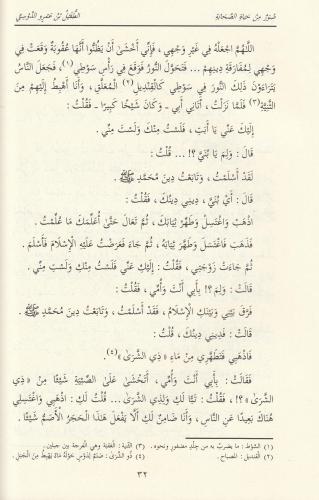 صُوَرٌ مِنْ حَيَاةِ الصَّحَابَةِ
الطُّفَيْلُ بْنُ عَمْرٍو الدَّوْسِيُّ
اللَّهُمَّ اجْعَلْهُ فِي غَيْرِ وَجْهِي ، فَإِنِّي أَخْشَىٰ أَنْ يَظُنُّوا أَنَّهَا عُقُوبَةٌ وَقَعَتْ فِي
وَجْهِي لِمُفَارَقَةِ دِينِهِمْ ... فَتَحَوَّلَ النُّورُ فَوَقَعَ فِي رَأْسِ سَوْطِي(١)، فَجَعَلَ النَّاسُ
يَتَرَاءَوْنَ ذَلِكَ النُّورَ فِي سَوْطِي كَالْقِنْدِيلِ(٢) الْمُعَلَّقِ ، وَأَنَا أَهْبِطُ إِلَيْهِمْ مِنَ
الثَّنِيَّةِ(٣) فَلَمَّا نَزَلْتُ ، أَتَانِي أَبِي ـ وَكَانَ شَيْخًا كَبِيرًا ـ فَقُلْتُ :
إِلَيْكَ عَنِّي يَا أَبَتِ ، فَلَسْتُ مِنْكَ وَلَسْتَ مِنِّي .
قَالَ : وَلِمَ يَا بُنَيَّ ؟! ... قُلْتُ :
لَقَدْ أَسْلَمْتُ ، وَتَابَعْتُ دِينَ مُحَمَّدٍ ﷺ .
قَالَ : أَيْ بُنَيَّ ، دِينِي دِينُكَ ، فَقُلْتُ :
اذْهَبْ وَاغْتَسِلْ وَطَهِّرْ ثِيَابَكَ ، ثُمَّ تَعَالَ حَتَّىٰ أُعَلِّمَكَ مَا عُلِّمْتُ .
فَذَهَبَ فَاغْتَسَلَ وَطَهَّرَ ثِيَابَهُ ، ثُمَّ جَاءَ فَعَرَضْتُ عَلَيْهِ الْإِسْلَامَ فَأَسْلَمَ .
ثُمَّ جَاءَتْ زَوْجَتِي ، فَقُلْتُ : إِلَيْكِ عَنِّي فَلَسْتُ مِنْكِ وَلَسْتِ مِنِّي .
قَالَتْ : وَلِمَ ؟! بِأَبِي أَنْتَ وَأُمِّي ، فَقُلْتُ :
فَرَّقَ بَيْنِي وَبَيْنَكِ الْإِسْلَامُ ، فَقَدْ أَسْلَمْتُ ، وَتَابَعْتُ دِينَ مُحَمَّدٍ ﷺ .
قَالَتْ : فَدِينِي دِينُكَ ، قُلْتُ :
فَاذْهَبِي فَتَطَهَّرِي مِنْ مَاءِ « ذِي الشَّرَىٰ »(٤).
فَقَالَتْ : بِأَبِي أَنْتَ وَأُمِّي ، أَتَخْشَىٰ عَلَىٰ الصِّبْيَةِ شَيْئًا مِنْ « ذِي
الشَّرَىٰ » ؟! ، فَقُلْتُ : تَبًّا لَكِ وَلِذِي الشَّرَىٰ ... قُلْتُ لَكِ : اذْهَبِي وَاغْتَسِلِي
هُنَاكَ بَعِيدًا عَنِ النَّاسِ ، وَأَنَا ضَامِنٌ لَكِ أَلَّا يَفْعَلَ هَذَا الْحَجَرُ الْأَصَمُّ شَيْئًا .
(١) السَّوْط : ما يضرب به من جِلْدٍ مضفور ونحوه . (٣) الثَّنِيَّة : العقبة وهي الفرجة بين جبلين .
(٢) القنديل : المصباح . (٤) ذُو الشَّرَىٰ : صَنَمٌ لِدَوْسٍ حَوْلَهُ مَاءٌ يَهْبِطُ مِنَ الْجَبَلِ .
٣٢